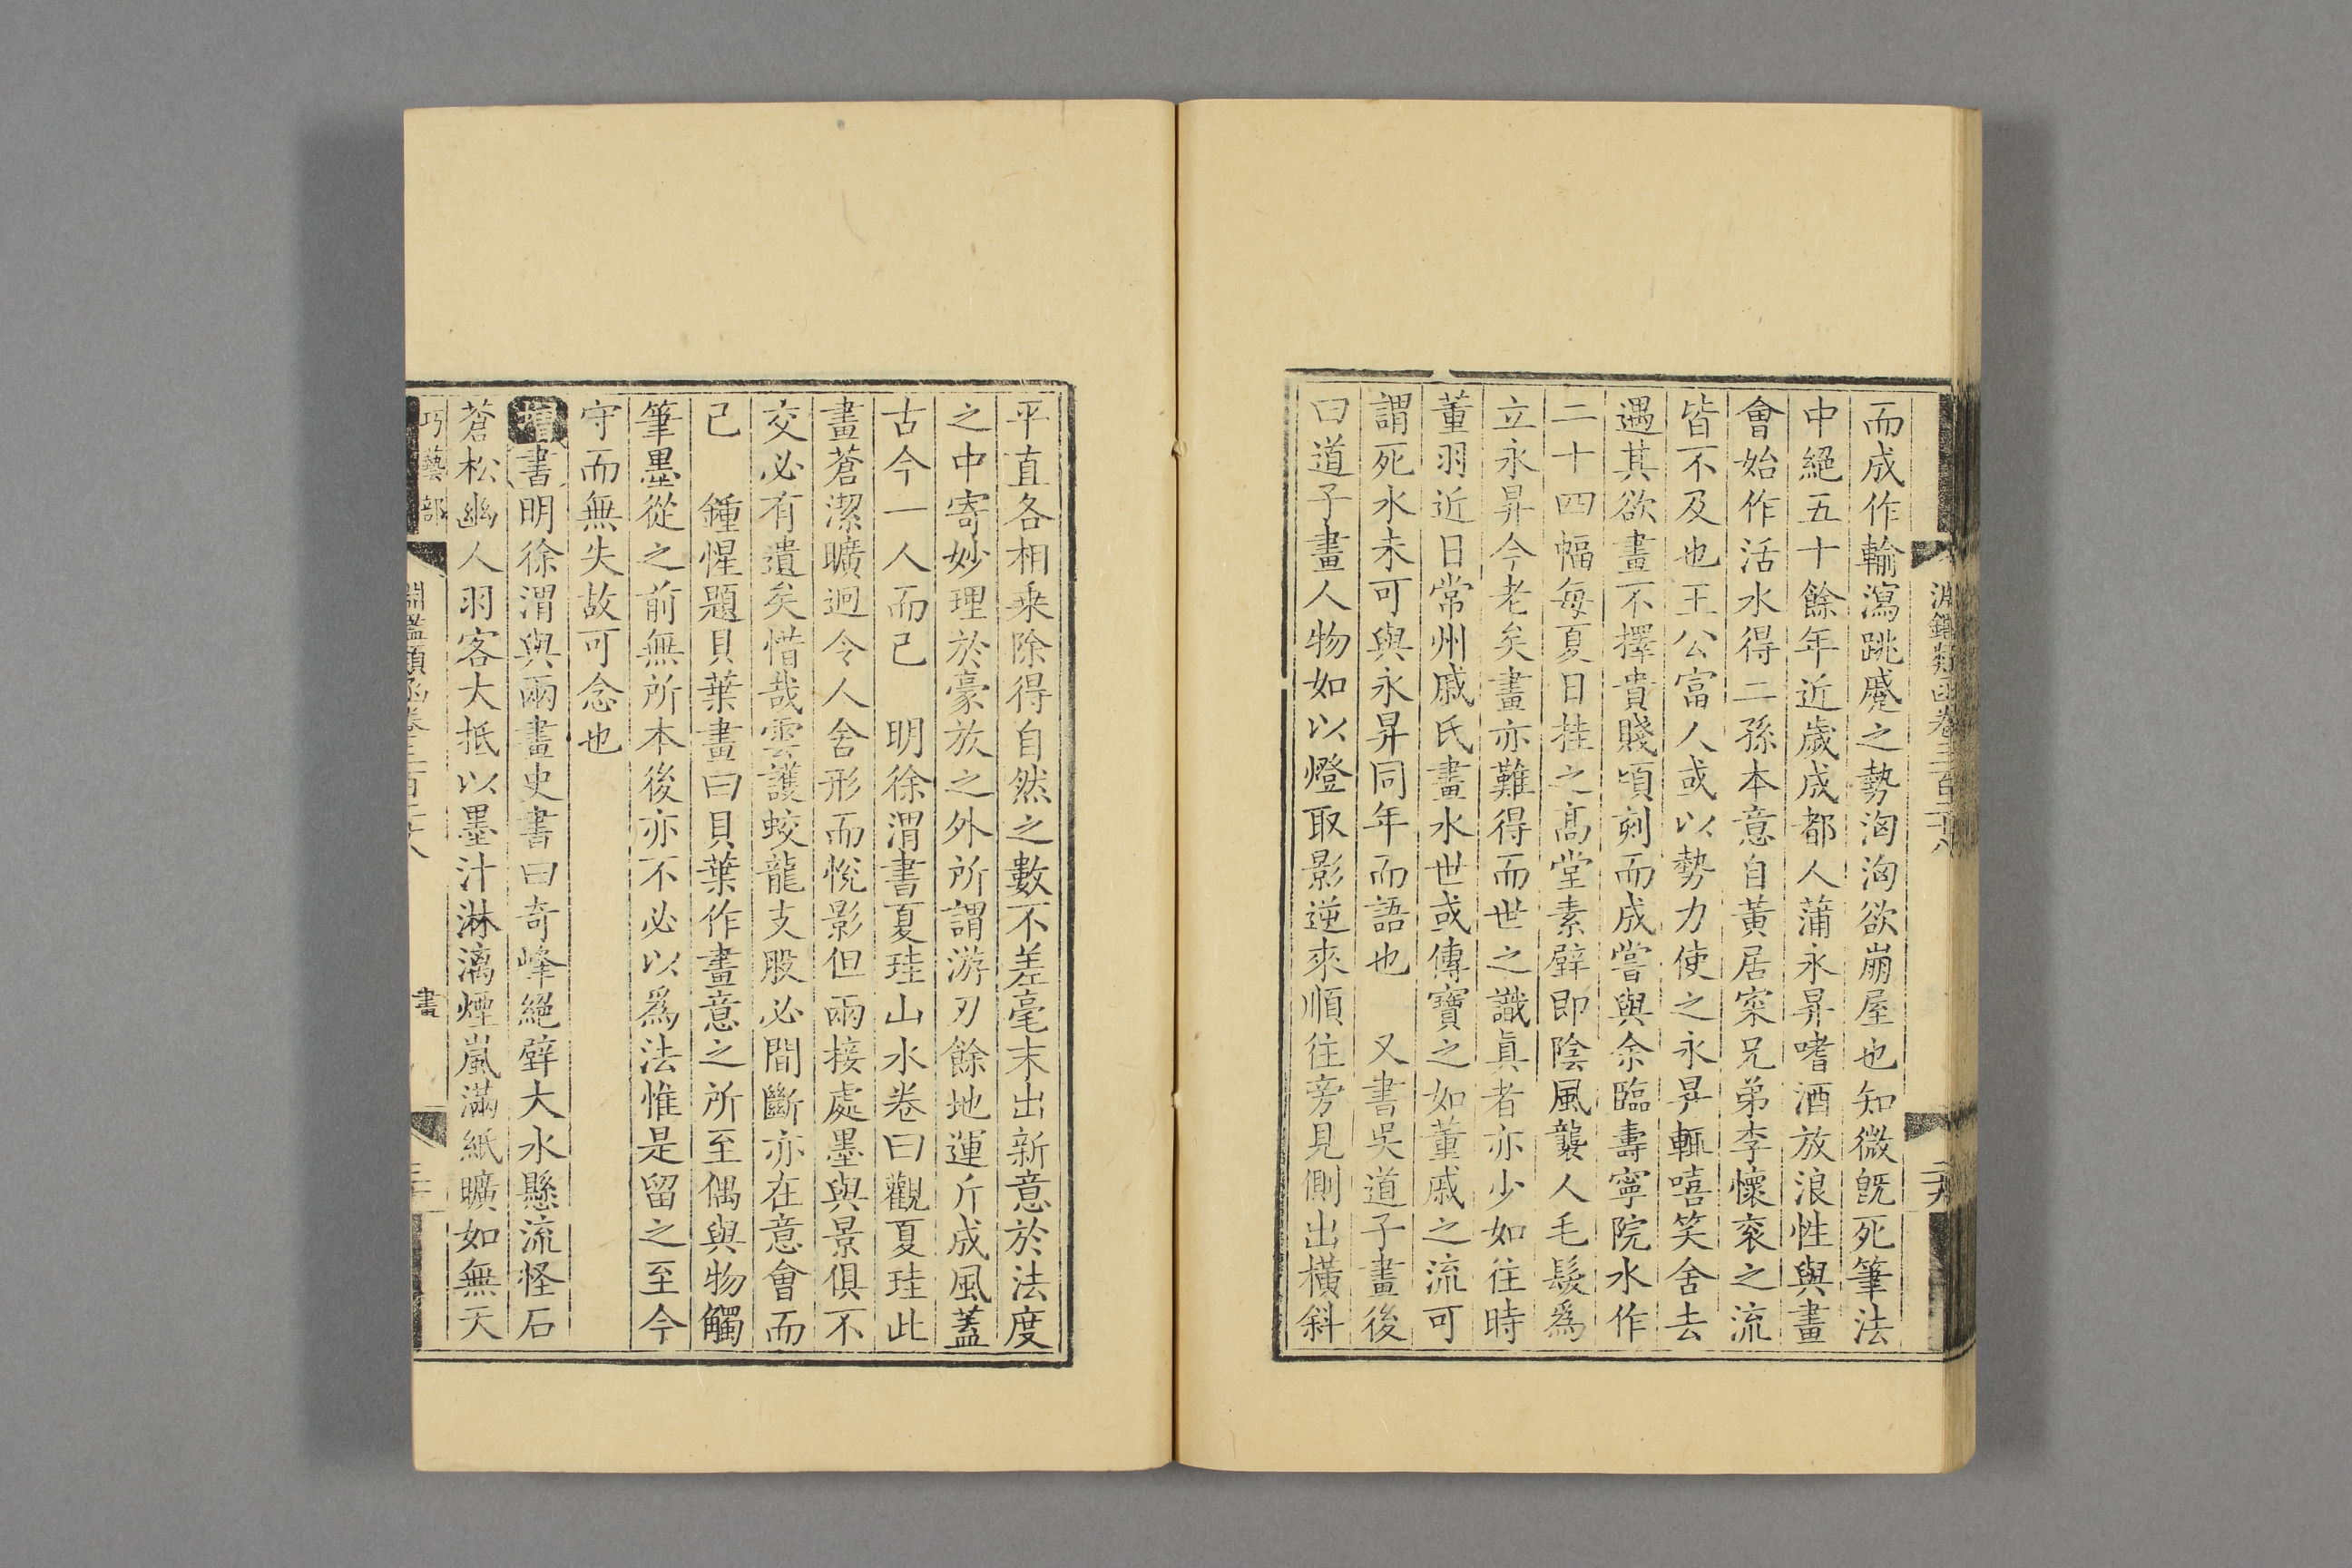 淵鑑類函卷三百二十八
而成作輸瀉跳蹙之勢洶洶欲崩屋也知微旣死筆法
中絕五十餘年近歲成都人蒲永昇嗜酒放浪性與畫
會始作活水得二孫本意自黃居寀兄弟李懷袞之流
皆不及也王公富人或以勢力使之永昇輒嘻笑舍去
遇其欲畫不擇貴賤頃刻而成嘗與余臨壽寧院水作
二十四幅每夏日挂之高堂素壁即陰風襲人毛髮爲
立永昇今老矣畫亦難得而世之識眞者亦少如往時
董羽近日常州戚氏畫水世或傳寶之如董戚之流可
謂死水未可與永昇同年而語也　又書吳道子畫後
曰道子畫人物如以燈取影逆來順往旁見側出橫斜
平直各相乘除得自然之數不差毫末出新意於法度
之中寄妙理於豪放之外所謂游刃餘地運斤成風蓋
古今一人而已　明徐渭書夏珪山水卷曰觀夏珪此
畫蒼潔曠迥令人舍形而悅影但兩接處墨與景俱不
交必有遺矣惜哉雲護蛟龍支股必間斷亦在意會而
已　鍾惺題貝葉畫曰貝葉作畫意之所至偶與物觸
筆墨從之前無所本後亦不必以爲法惟是留之至今
守而無失故可念也
增書明徐渭與兩畫史書曰奇峰絕壁大水懸流怪石
蒼松幽人羽客大抵以墨汁淋漓煙嵐滿紙曠如無天
巧藝部
淵鑑類函卷三百二十八
畫